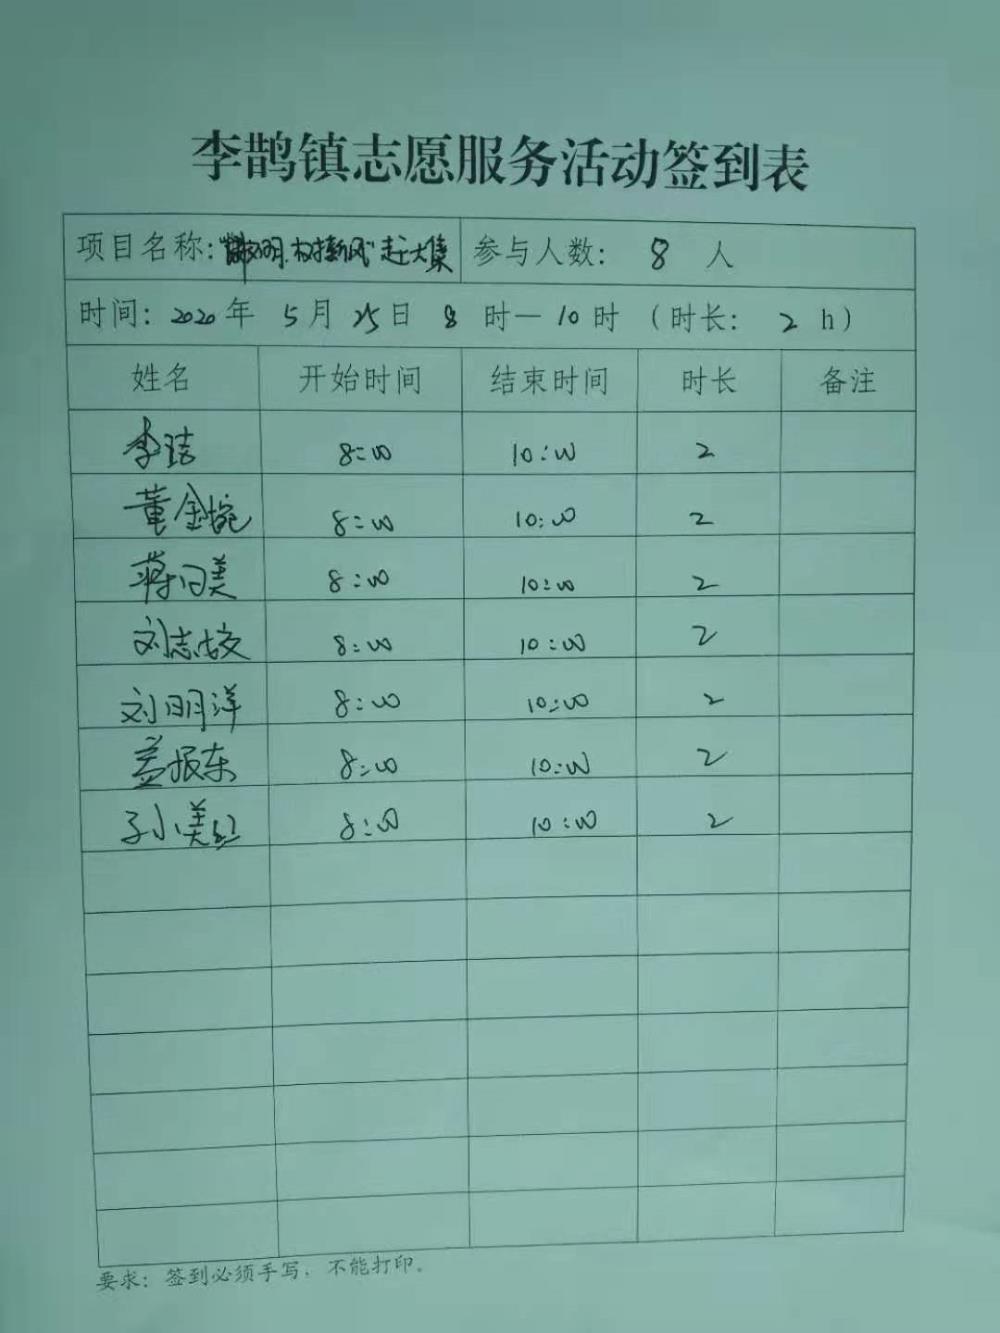 李鹊镇志愿服务活动签到表
项目名称：“讲文明.树新风”赶大集 参与人数： 8 人
时间：2020年 5月 25日 8 时—10时 （时长： 2 h）
姓名 开始时间 结束时间 时长 备注
李洁 8:00 10:00 2
董金婉 8:00 10:00 2
蒋同美 8:00 10:00 2
刘志姣 8:00 10:00 2
刘明洋 8:00 10:00 2
盖振东 8:00 10:00 2
孙美红 8:00 10:00 2
要求：签到必须手写，不能打印。